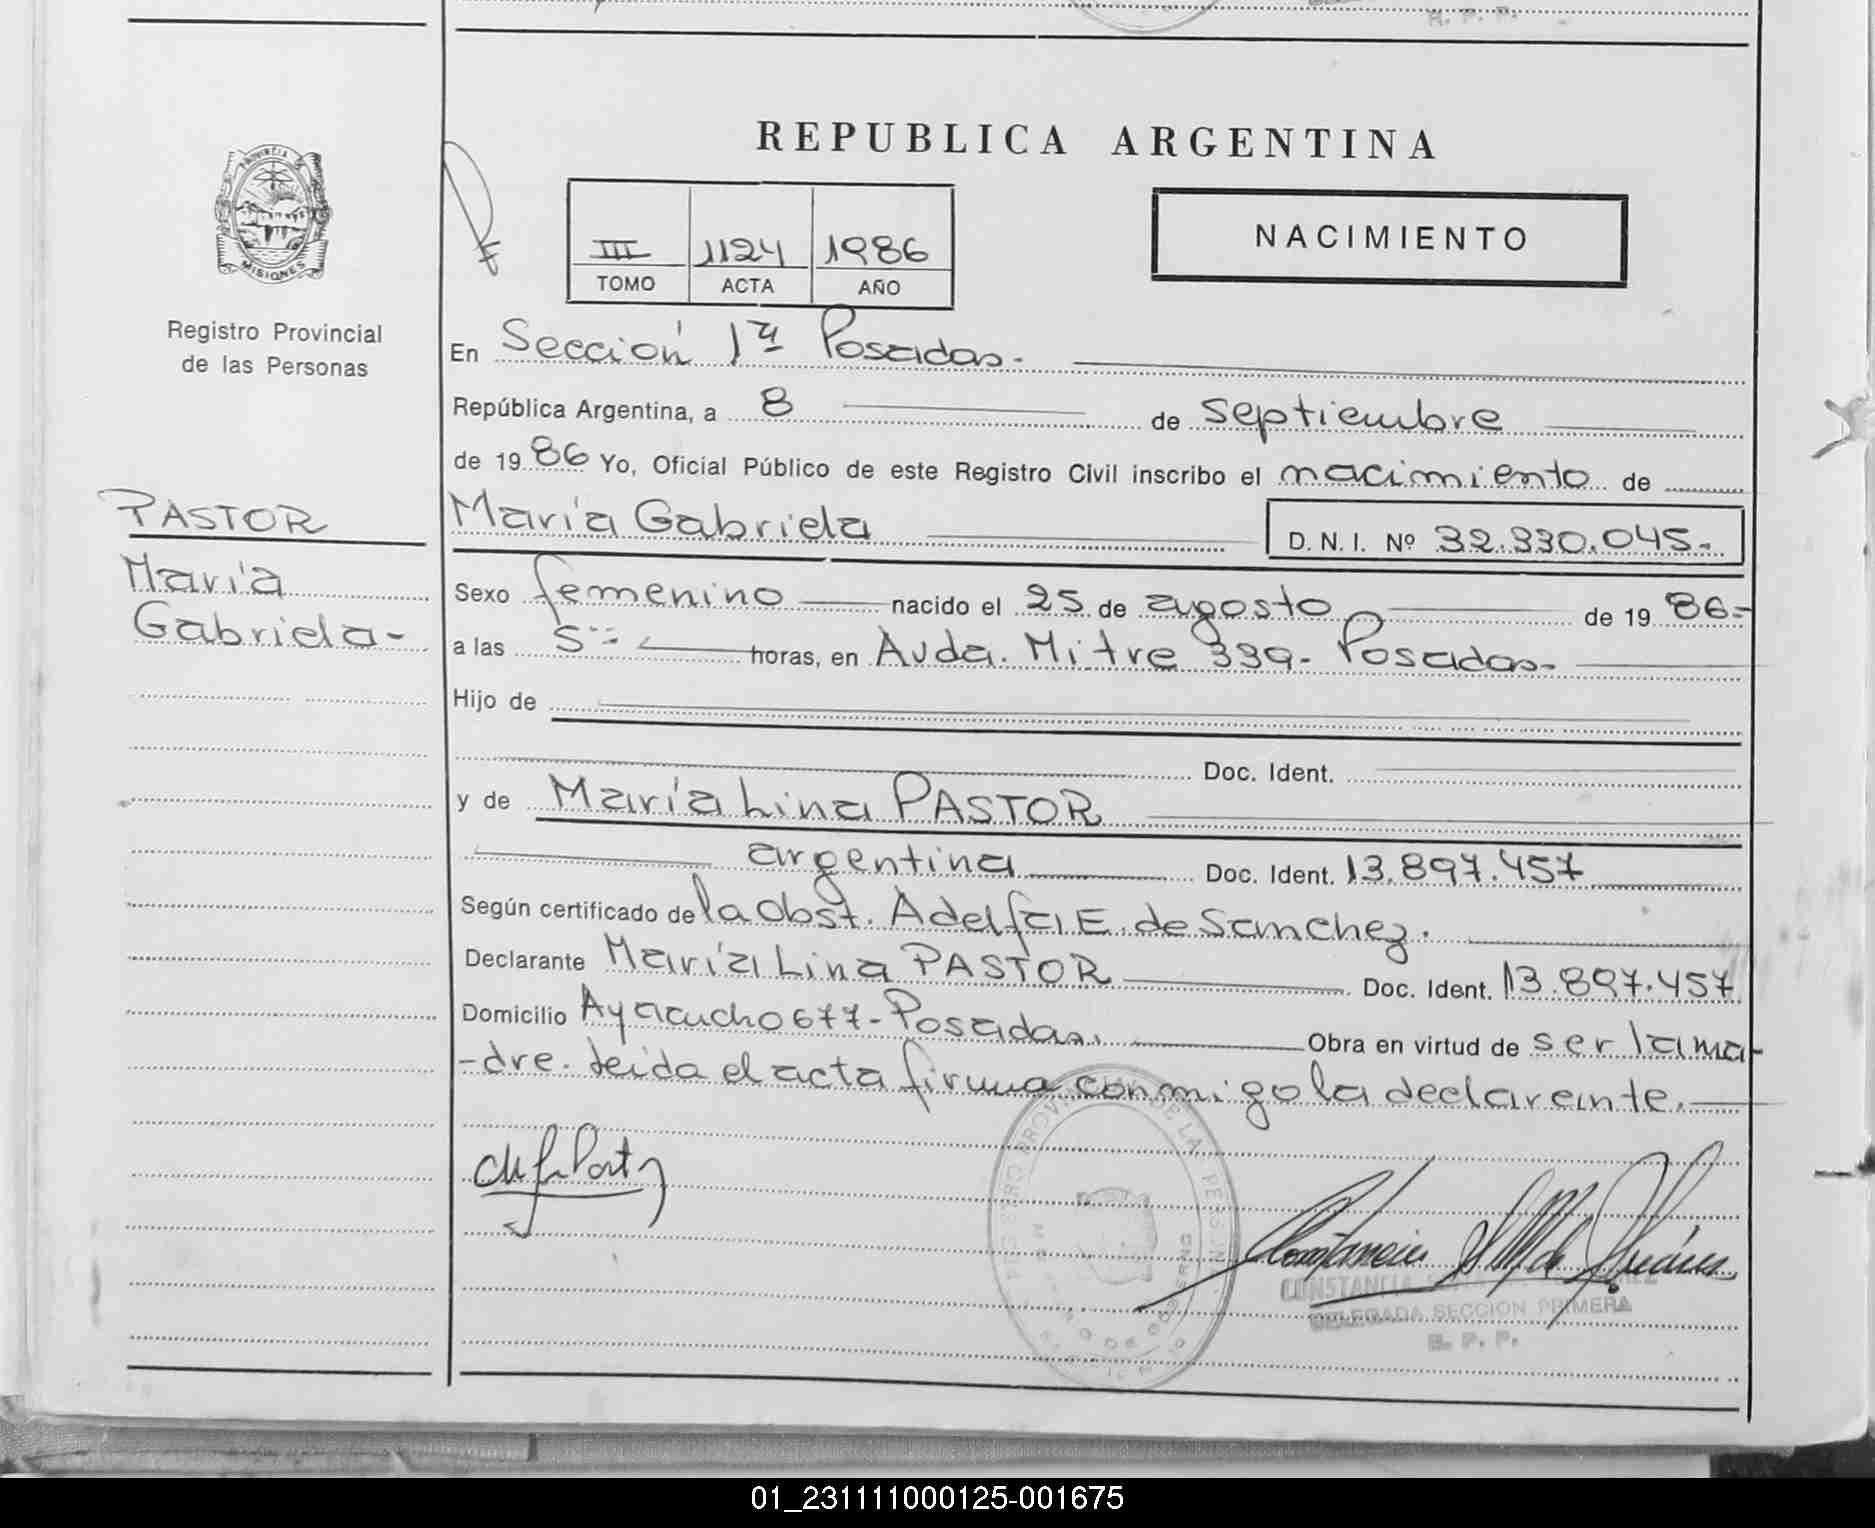 H. P. P.
REPUBLICA ARGENTINA
PROVINCIA DE
MISIONES
Registro Provincial
de las Personas
III 1124 1986
TOMO ACTA AÑO
NACIMIENTO
En Sección 1ª Posadas.
República Argentina, a 8 de septiembre
de 1986 Yo, Oficial Público de este Registro Civil inscribo el nacimiento de
PASTOR
María
Gabriela-
María Gabriela D. N. I. Nº 32.330.045.-
Sexo femenino nacido el 25 de agosto de 1986-
a las 5 horas, en Avda. Mitre 339- Posadas-
Hijo de
Doc. Ident.
y de María Lina PASTOR
argentina Doc. Ident. 13.897.457
Según certificado de la Obst. Adelfa E. de Sanchez.
Declarante María Lina PASTOR Doc. Ident. 13.897.457
Domicilio Ayacucho 677- Posadas. Obra en virtud de ser la ma-
-dre. Leida el acta firma conmigo la declarante.
REGISTRO PROVINCIAL DE LAS PERSONAS
CONSTANCIA
DELEGADA SECCION PRIMERA
R. P. P.
01_231111000125-001675